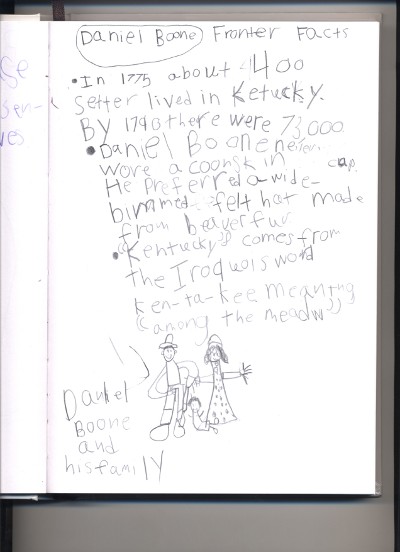 Daniel Boone Fronter Facts
• In 1775 about 400
Setter lived in Ketucky.
By 1790 there were 73,000.
• Daniel Boone never
wore a coonskin cap.
He preferred a wide-
bimmed felt hat made
from beaverfur
• "Kentucky" comes from
the Iroquois word
Ken-ta-kee meaning
"among the meadw"
Daniel
Boone
and
his family
se
sen-
ves